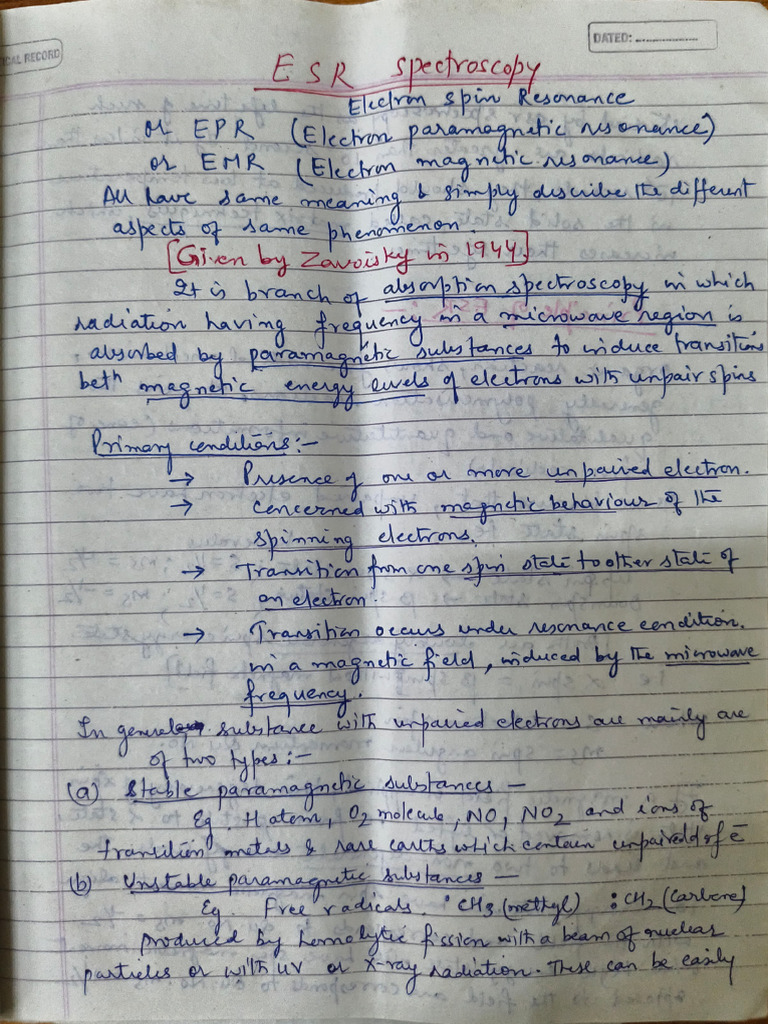 CAL RECORD
DATED: ..................
ESR spectroscopy
Electron spin Resonance
or EPR (Electron paramagnetic resonance)
or EMR (Electron magnetic resonance)
All have same meaning & simply describe the different
aspects of same phenomenon.
[Given by Zavoisky in 1944.]
It is branch of absorption spectroscopy in which
radiation having frequency in a microwave region is
absorbed by paramagnetic substances to induce transitions
beth magnetic energy levels of electrons with unpair spins
Primary conditions:-
→ Presence of one or more unpaired electron.
→ Concerned with magnetic behaviour of the
spinning electrons.
→ Transition from one spin state to other state of
an electron.
→ Transition occurs under resonance condition.
in a magnetic field, induced by the microwave
frequency.
In general substance with unpaired electrons are mainly are
of two types:-
(a) Stable paramagnetic substances -
Eg. H atom, O2 molecule, NO, NO2 and ions of
transition metals & rare earths which contain unpaired of e̅
(b) Unstable paramagnetic substances -
Eg. Free radicals. ·CH3 (methyl) :CH2 (Carbene)
produced by homolytic fission with a beam of nuclear
particles or with UV or X-ray radiation. These can be easily